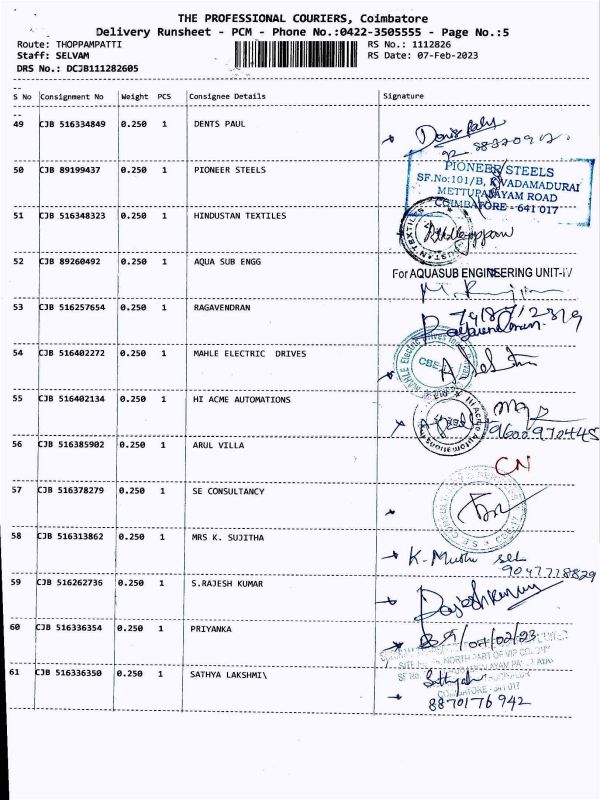 THE PROFESSIONAL COURIERS, Coimbatore
Delivery Runsheet - PCM - Phone No.:0422-3505555 - Page No.:5
Route: THOPPAMPATTI RS No.: 1112826
Staff: SELVAM RS Date: 07-Feb-2023
DRS No.: DCJB111282605
--
S No Consignment No Weight PCS Consignee Details Signature
--
49 CJB 516334849 0.250 1 DENTS PAUL
50 CJB 89199437 0.250 1 PIONEER STEELS
PIONEER STEELS
SF.No:101/B, K.VADAMADURAI
METTUPALAYAM ROAD
COIMBATORE - 641 017
51 CJB 516348323 0.250 1 HINDUSTAN TEXTILES
52 CJB 89260492 0.250 1 AQUA SUB ENGG
For AQUASUB ENGINEERING UNIT-IV
53 CJB 516257654 0.250 1 RAGAVENDRAN
54 CJB 516402272 0.250 1 MAHLE ELECTRIC DRIVES
55 CJB 516402134 0.250 1 HI ACME AUTOMATIONS
9600970445
56 CJB 516385902 0.250 1 ARUL VILLA
CN
57 CJB 516378279 0.250 1 SE CONSULTANCY
58 CJB 516313862 0.250 1 MRS K. SUJITHA
9047778829
59 CJB 516262736 0.250 1 S.RAJESH KUMAR
Rajeshkumar
60 CJB 516336354 0.250 1 PRIYANKA
07/02/23
61 CJB 516336350 0.250 1 SATHYA LAKSHMI\
Sathya
8870176942